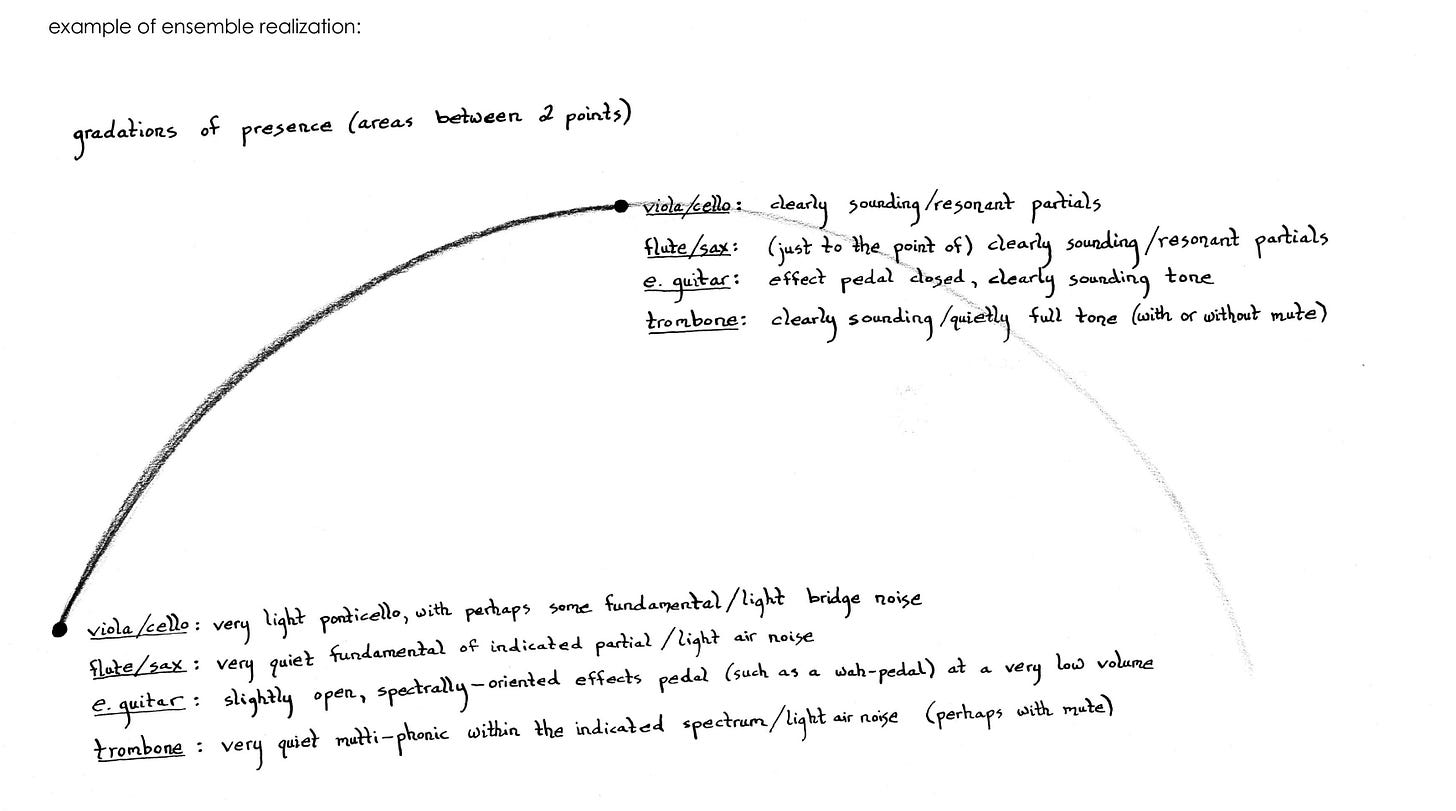 example of ensemble realization:
gradations of presence (areas between 2 points)
viola/cello: clearly sounding/resonant partials
flute/sax: (just to the point of) clearly sounding/resonant partials
e. guitar: effect pedal closed, clearly sounding tone
trombone: clearly sounding/quietly full tone (with or without mute)
viola/cello: very light ponticello, with perhaps some fundamental/light bridge noise
flute/sax: very quiet fundamental of indicated partial/light air noise
e. guitar: slightly open, spectrally-oriented effects pedal (such as a wah-pedal) at a very low volume
trombone: very quiet multi-phonic within the indicated spectrum/light air noise (perhaps with mute)